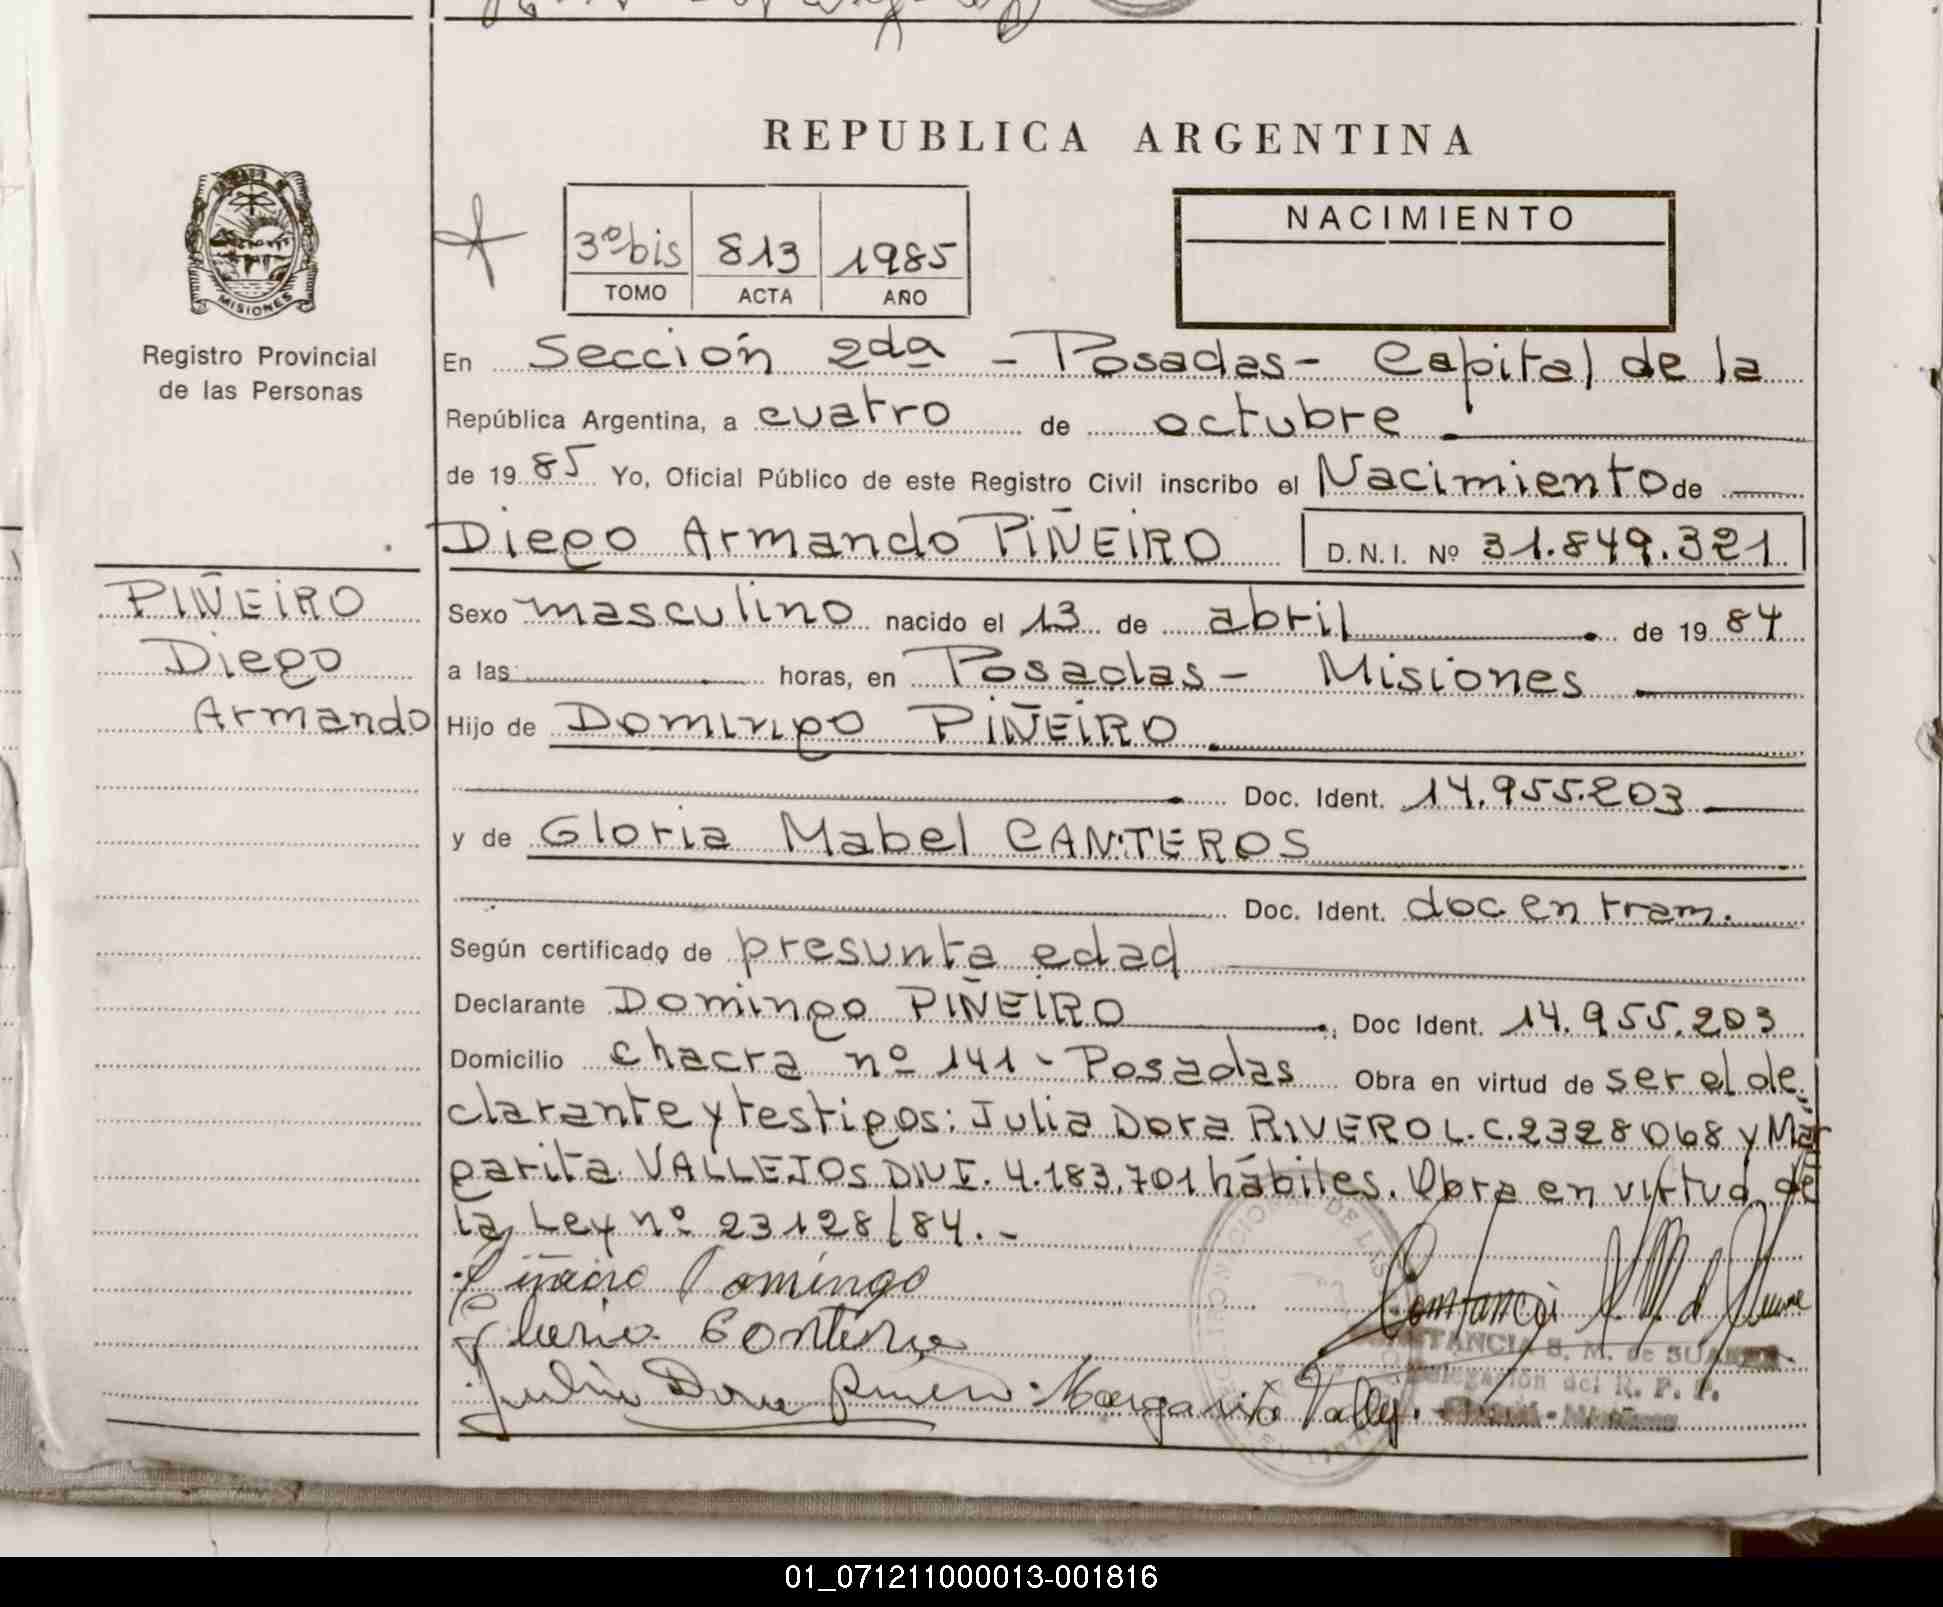 REPUBLICA ARGENTINA
MISIONES
Registro Provincial
de las Personas
3º bis 813 1985
TOMO ACTA AÑO
NACIMIENTO
En Sección 2da - Posadas - Capital de la
República Argentina, a cuatro de octubre
de 1985 Yo, Oficial Público de este Registro Civil inscribo el Nacimiento de
Diego Armando PIÑEIRO D.N.I. Nº 31.849.321
PIÑEIRO
Diego
Armando
Sexo masculino nacido el 13 de abril de 1984
a las horas, en Posadas - Misiones
Hijo de Domingo PIÑEIRO
Doc. Ident. 14.955.203
y de Gloria Mabel CANTEROS
Doc. Ident. doc en tram.
Según certificado de presunta edad
Declarante Domingo PIÑEIRO Doc Ident. 14.955.203
Domicilio chacra nº 141 - Posadas Obra en virtud de ser el de
clarante y testigos: Julia Dora RIVERO L.C. 2328068 y Mar
garita VALLEJOS D.N.I. 4.183.701 hábiles. Obra en virtud de
la Ley nº 23128/84.-
Piñeiro Domingo
Gloria Canteros
Julia Dora Rivero Margarita Vallej.
CONSTANCIA S. M. de SUAREZ
Delegación del R. P. P.
01_071211000013-001816